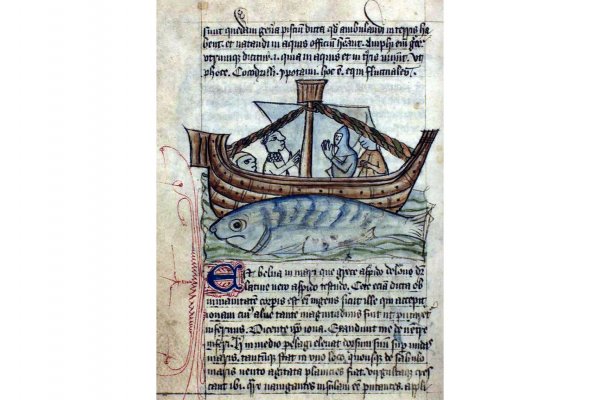 sunt quedam gña pisciũ dicta qđ ambulandi in terris ha
bent. et natandi in aquis officiũ hñant. Amphi em̃ grece
utrumque dicitur .i. quia in aquis et in tris uiuũt. ut
phoce. Cocodrilli. ypotami. hoc ẽ. equi fluctuales.
Est belua in mari que grece aspido delone dr̃
latine uero aspido testudo. Cete eciã dicta ob
immanitatem corꝑis est em̃ ingens sicut ille qui accepit
ionam cuiꝰ aluꝰ tante magnitudinis fuit ut putaret̃
infernus. Dicente ipõ iona. Exaudiuit me de uentre
inferi. in medio pelagi eleuat dorsum suũ suꝑ undas
maris. tantũque stat in uno loco, quousque de sabulo
maris uento agitata planicies fiat. virgultaque cres
cant ibi. nauigantes insulam eẽ putantes. appli